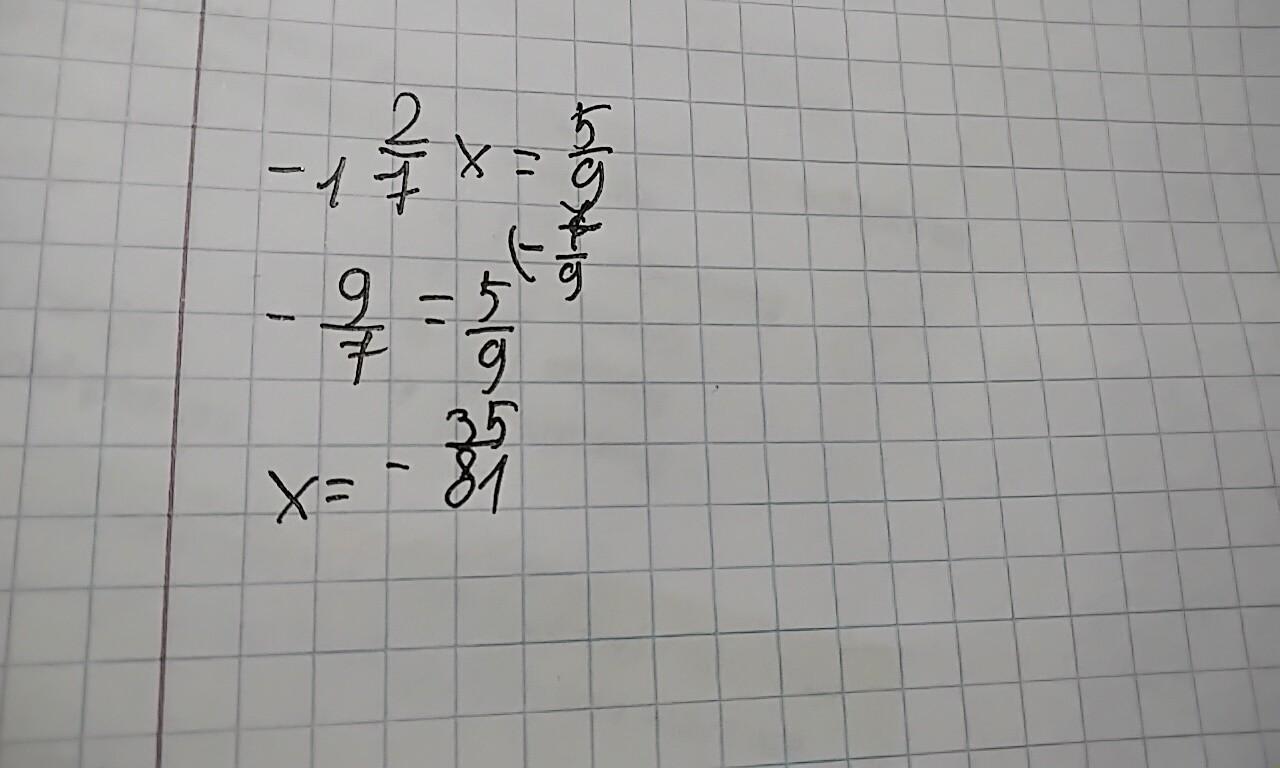 -1 2/7 x = 5/9
- 9/7 = 5/9 (- 7/9
x = - 35/81